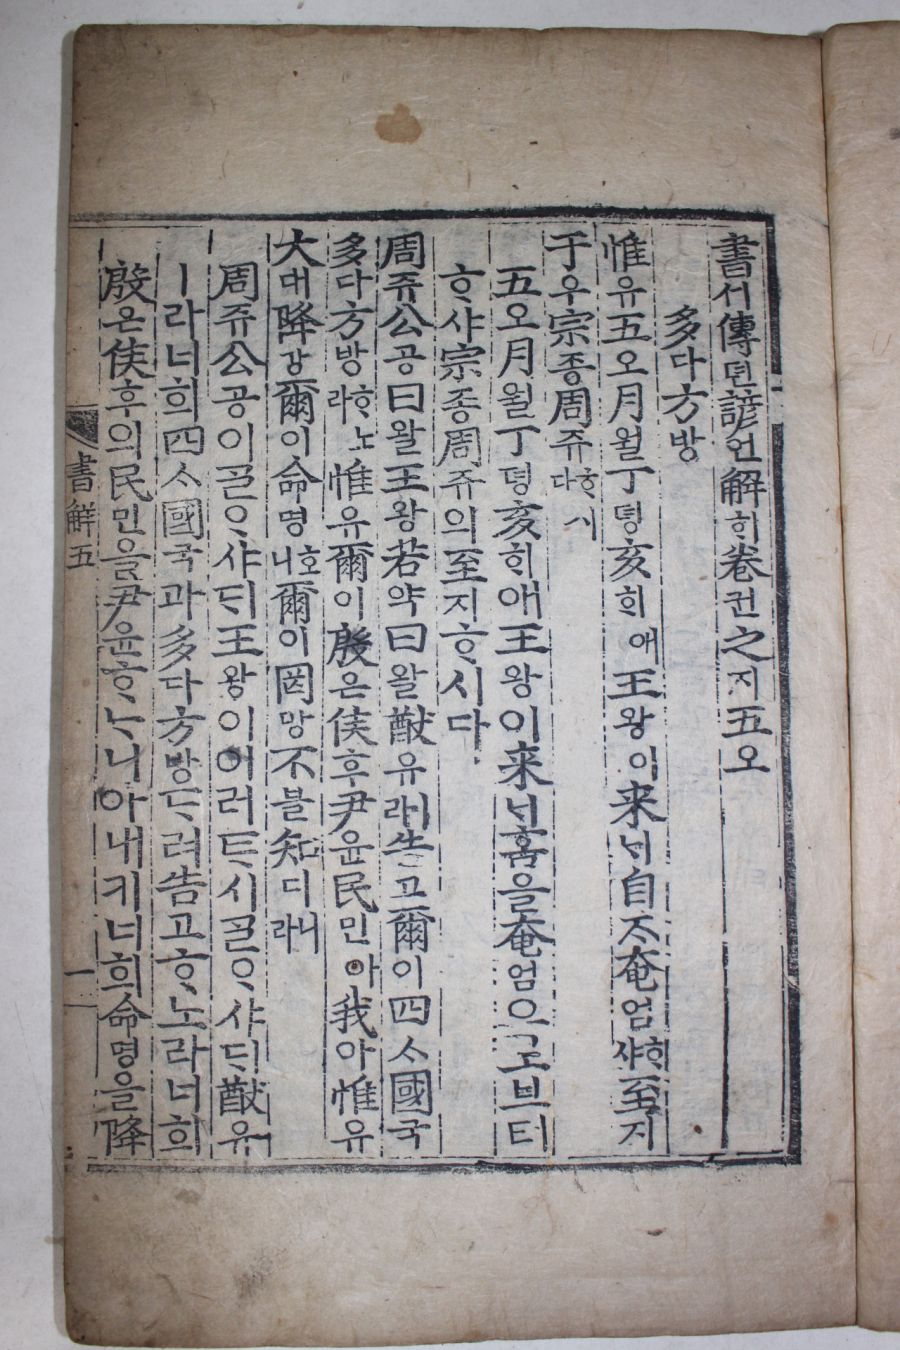 書셔傳뎐諺언解ᄒᆡ卷권之지五오
多다方방
惟유五오月월丁뎡亥ᄒᆡ애王왕이来ᄅᆡ自ᄌᆞ奄엄ᄒᆞ샤至지
于우宗종周쥬ᄒᆞ시다
五오月월丁뎡亥ᄒᆡ애王왕이来ᄅᆡᄒᆞᆷ을奄엄으로브터
ᄒᆞ샤宗종周쥬의至지ᄒᆞ시다
周쥬公공曰왈王왕若약曰왈猷유ㅣ라告고爾이四ᄉᆞ國국
多다方방ᄒᆞ노라惟유爾이殷은侯후尹윤民민아我아惟유
大대降강爾이命명호니爾이罔망不블知디니라
周쥬公공이ᄀᆞᆯᄋᆞ샤ᄃᆡ王왕이이러ᄐᆞ시ᄀᆞᆯᄋᆞ샤ᄃᆡ猷유
ㅣ라너희四ᄉᆞ國국과多다方방ᄃᆞ려告고ᄒᆞ노라너희
殷은侯후의民민을尹윤ᄒᆞᄂᆞ니아내키너희命명을降
書解五
一